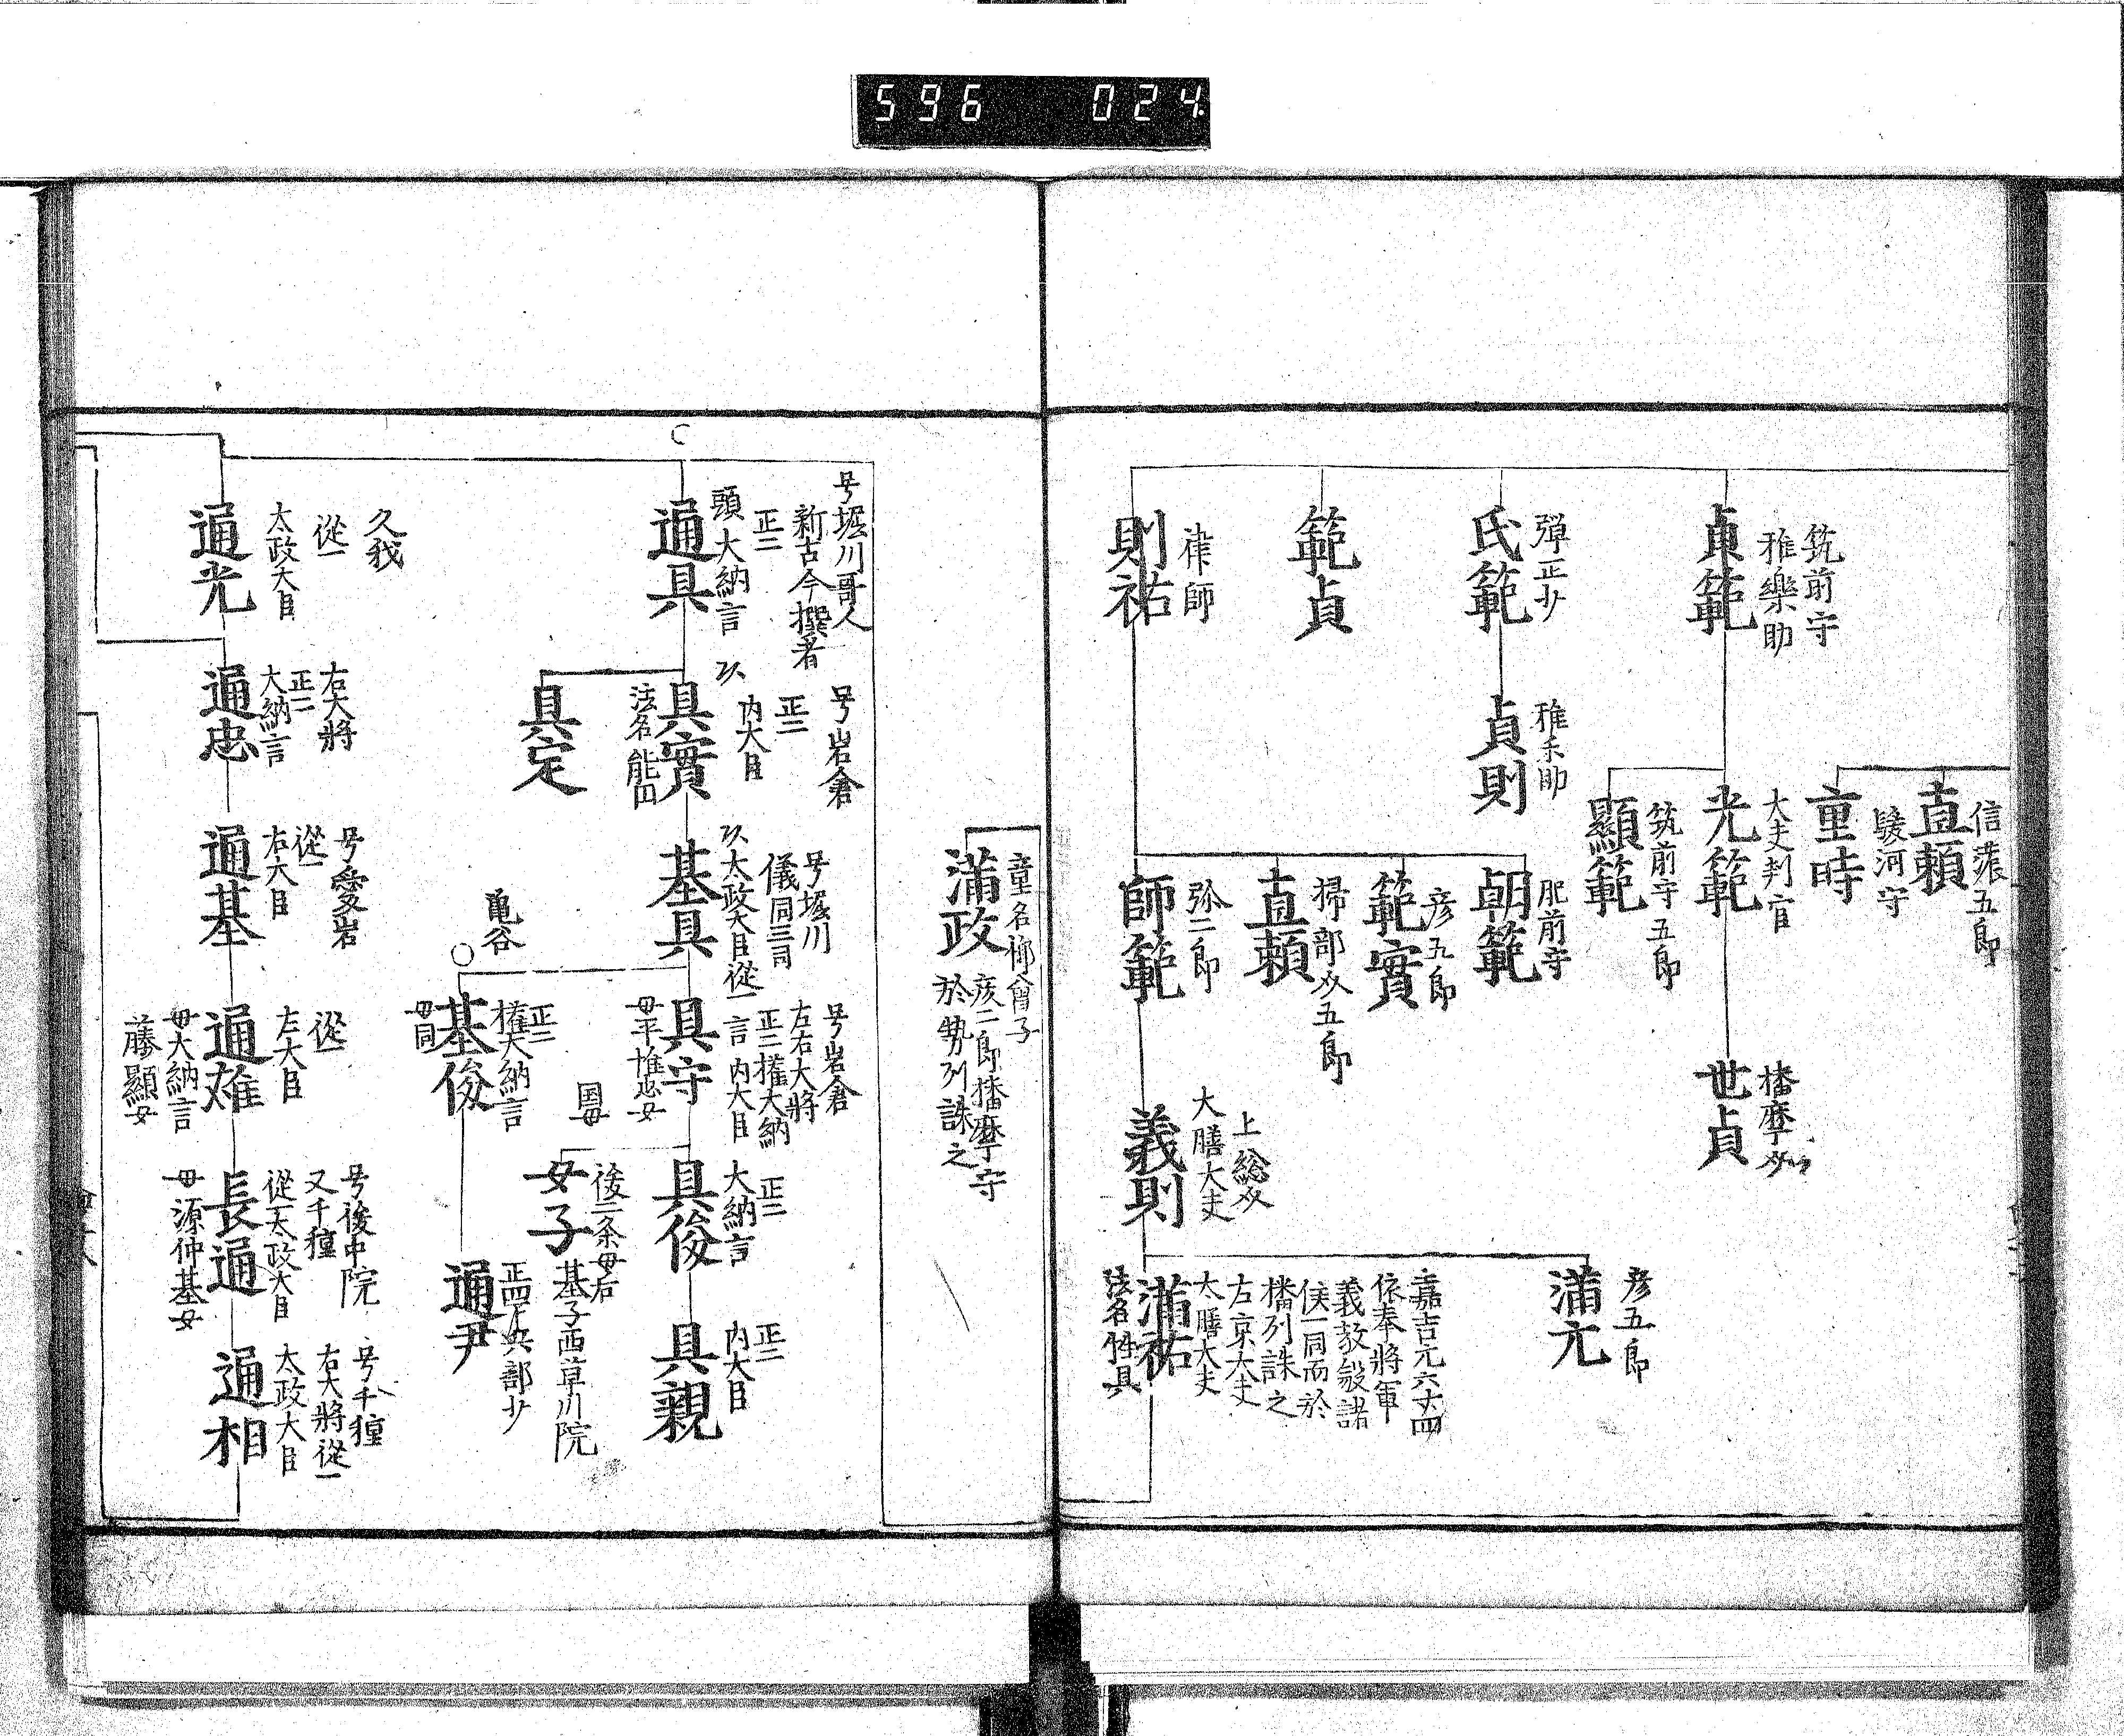 596 024
筑前守
雅樂助
貞範
弾正少
氏範
範貞
律師
則祐
雅禾助
貞則
信濃五郎
直頼
駿河守
重時
大夫判官
光範
筑前守五郎
顯範
肥前守
朝範
彦五郎
範實
掃部五郎
直頼
弥二郎
師範
播磨
世貞
上總
大膳大夫
義則
彦五郎
満元
嘉吉元六廿四
依奉将軍
義教毀諸
侯一同而於
播列誅之
左京大夫
大膳大夫
満祐
法名性具
童名
彦二郎播磨守
於勢列誅之
満政
号堀川哥人
新古今撰者
正二
頭大納言
通具
久我
從一
太政大臣
通光
号岩倉
正二
内大臣
具實
法名
具定
右大将
正二
大納言
通忠
号堀川
儀同三司
太政大臣從一
基具
亀谷
号愛岩
從一
右大臣
通基
号岩倉
左右大将
正二権大納
言内大臣
具守
母平惟忠女
国母
正二
権大納言
基俊
母同
從一
左大臣
通雄
母大納言
藤顯女
正二
大納言
具俊
後二条母后
女子
基子西草川院
正四下兵部少
通尹
号後中院
又千種
從一太政大臣
長通
母源仲基女
正二
内大臣
具親
号千種
右大将從一
太政大臣
通相